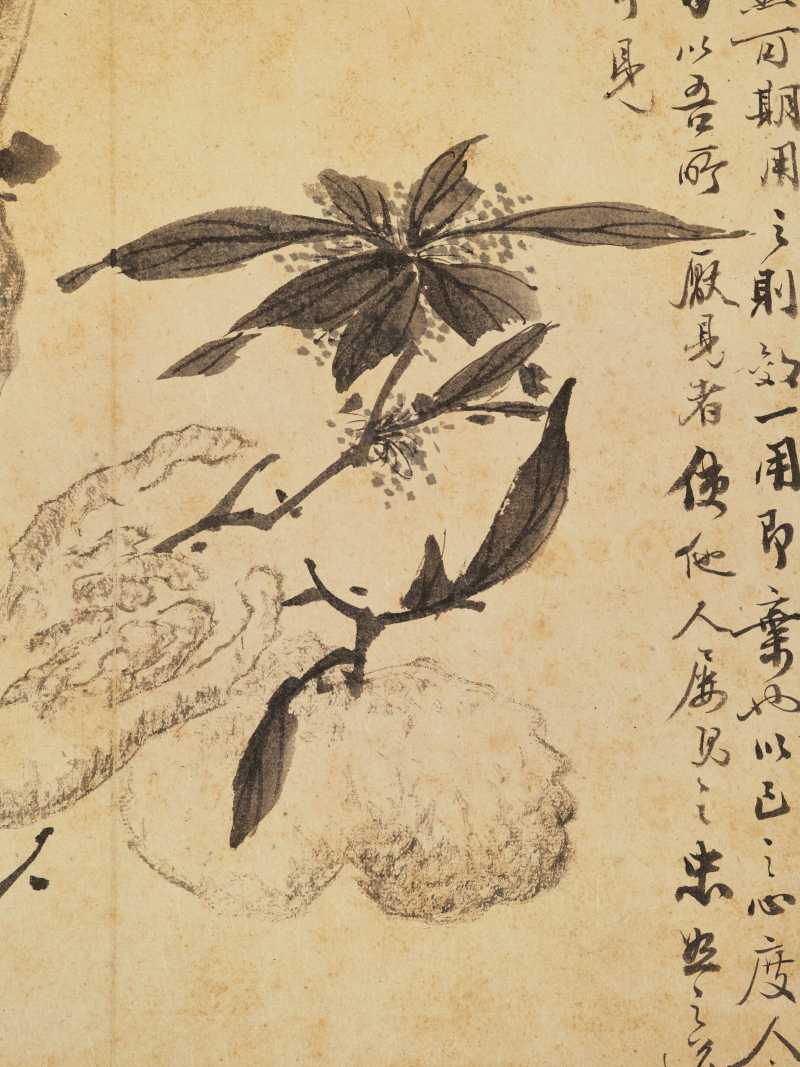 百期用之則效一用即棄也以己之心度人
以吾所厭見者使他人屢見之忠恕之道
可見